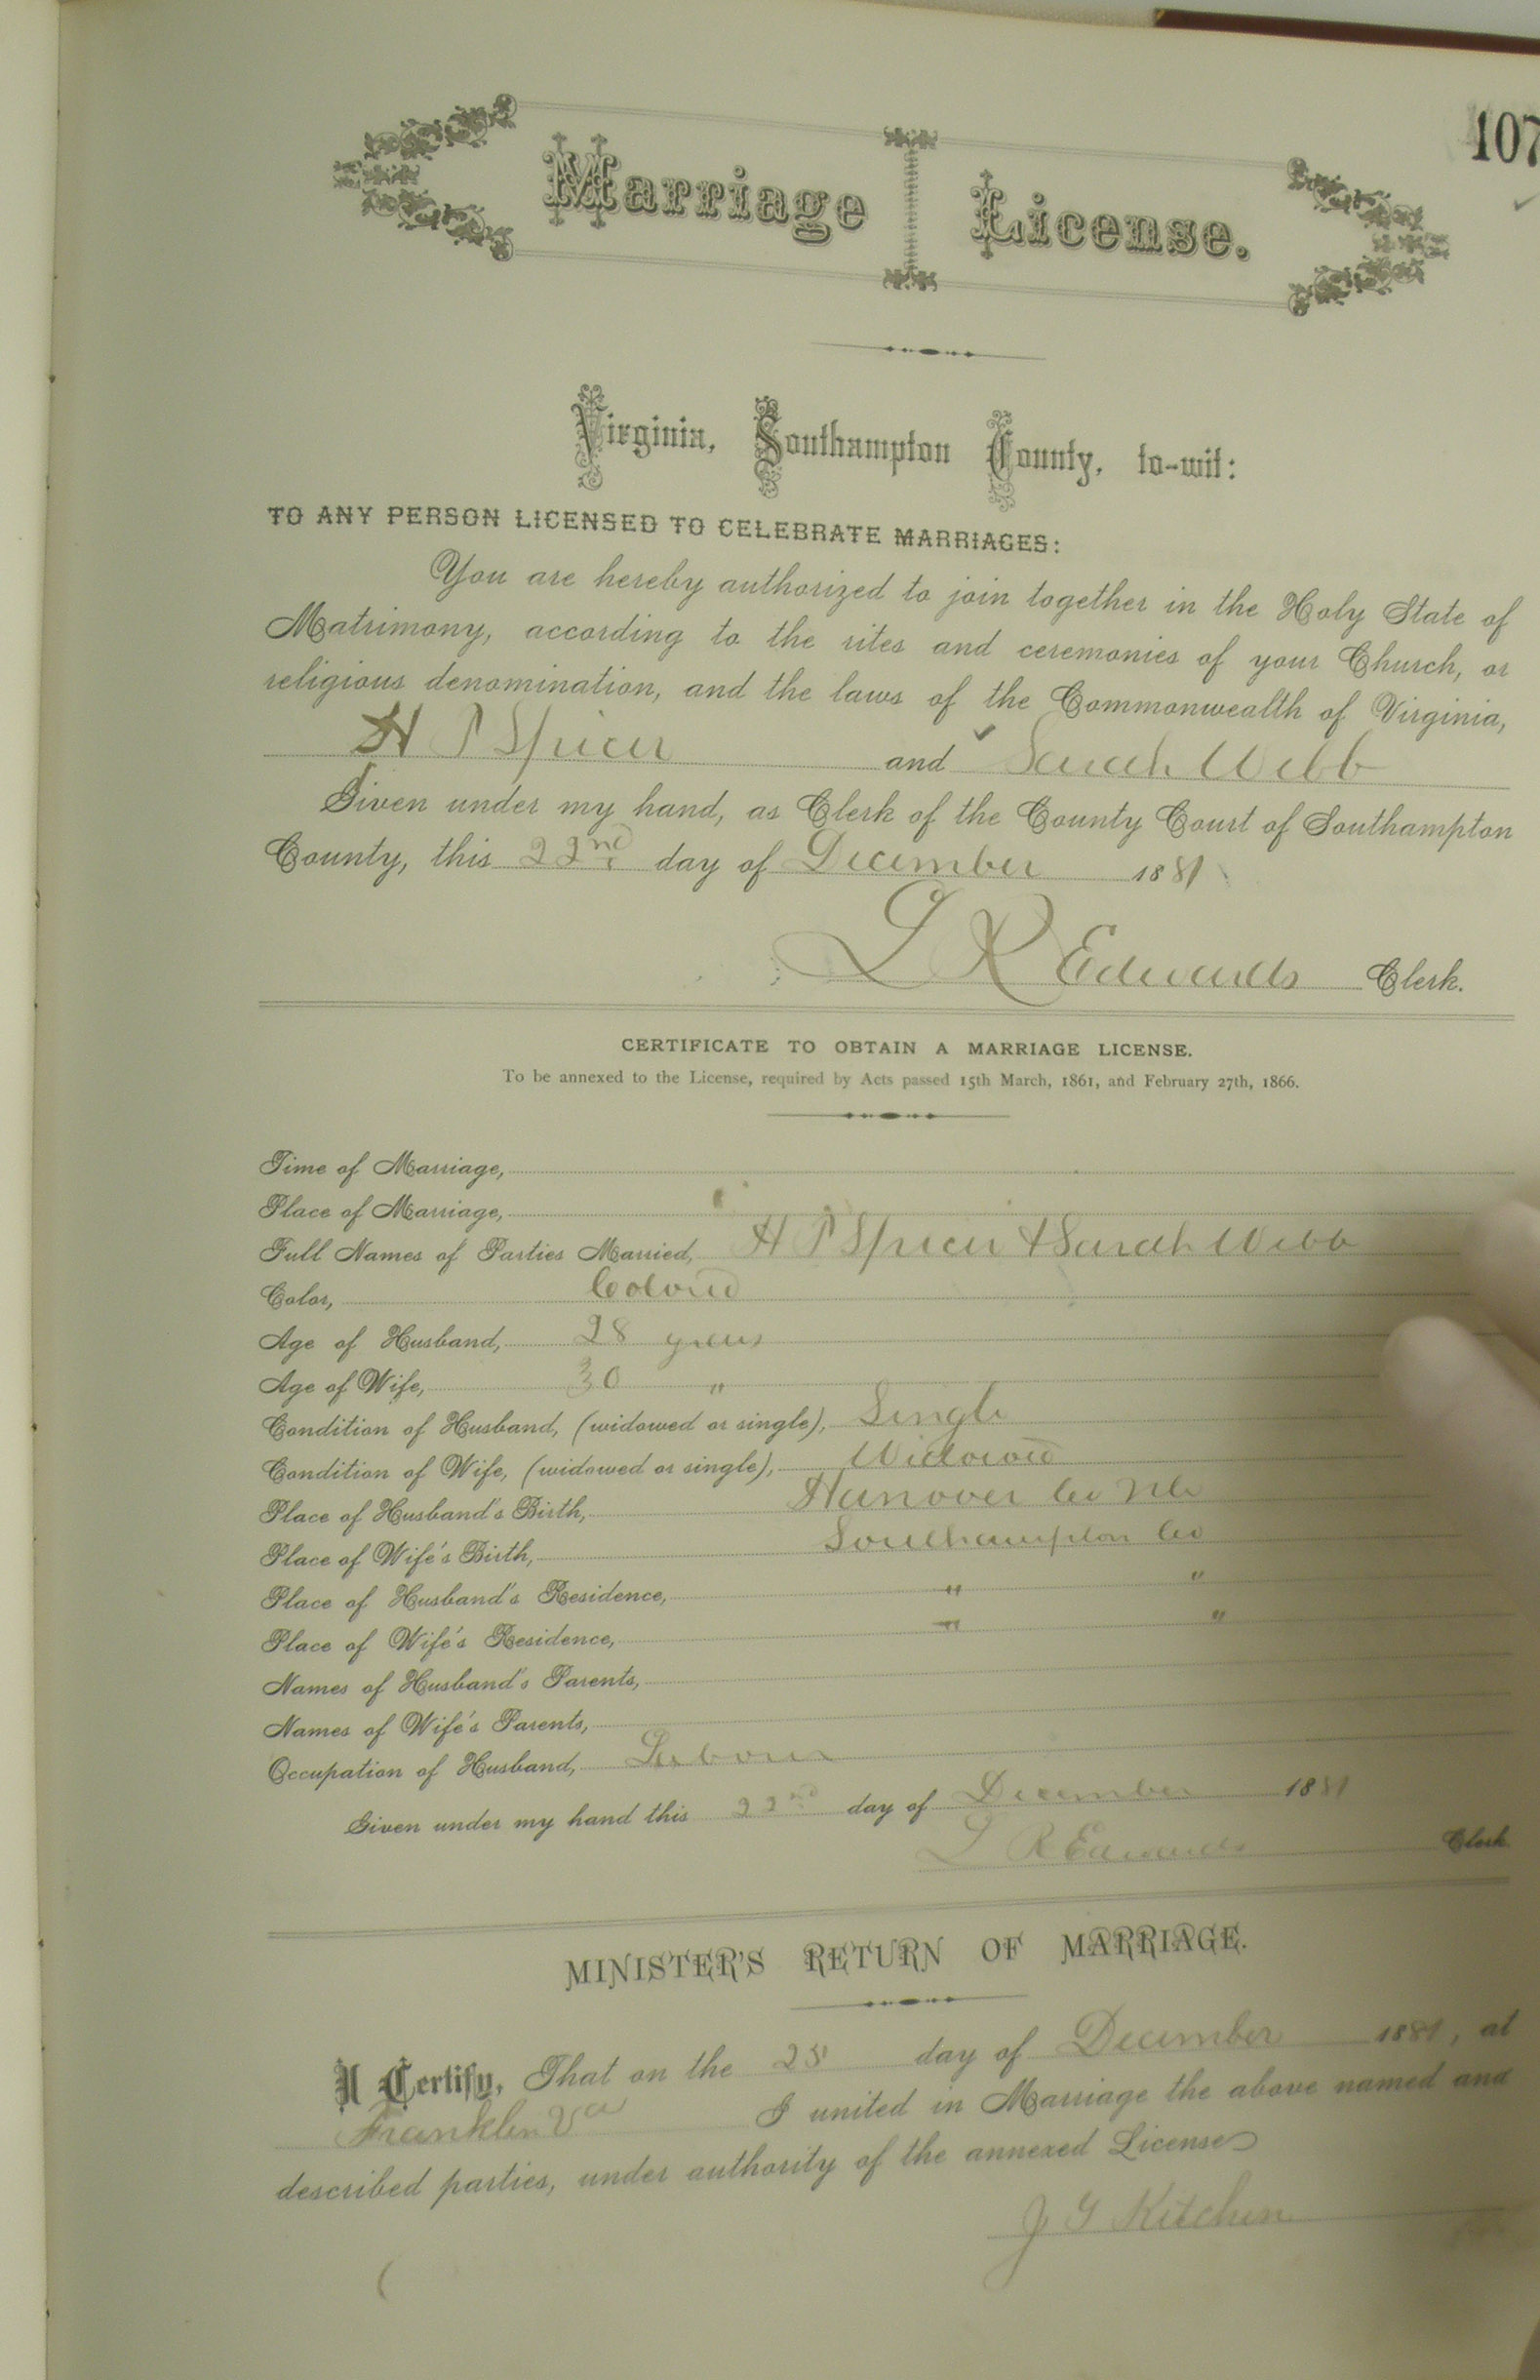 107
Marriage License.
Virginia, Southampton County, to-wit:
TO ANY PERSON LICENSED TO CELEBRATE MARRIAGES:
You are hereby authorized to join together in the Holy State of
Matrimony, according to the rites and ceremonies of your Church, or
religious denomination, and the laws of the Commonwealth of Virginia,
H P Spicer and Sarah Webb
Given under my hand, as Clerk of the County Court of Southampton
County, this 22nd day of December 1881
L R Edwards Clerk.
CERTIFICATE TO OBTAIN A MARRIAGE LICENSE.
To be annexed to the License, required by Acts passed 15th March, 1861, and February 27th, 1866.
Time of Marriage,
Place of Marriage,
Full Names of Parties Married, H P Spicer & Sarah Webb
Color, Colored
Age of Husband, 28 years
Age of Wife, 30 "
Condition of Husband, (widowed or single), Single
Condition of Wife, (widowed or single), Widowed
Place of Husband's Birth, Hanover Co NC
Place of Wife's Birth, Southampton Co
Place of Husband's Residence, " "
Place of Wife's Residence, " "
Names of Husband's Parents,
Names of Wife's Parents,
Occupation of Husband,
Given under my hand this 22nd day of December 1881
L R Edwards Clerk
MINISTER'S RETURN OF MARRIAGE.
I Certify, That on the day of December 1881, at
Franklin Va I united in Marriage the above named and
described parties, under authority of the annexed License
J G Kitchen